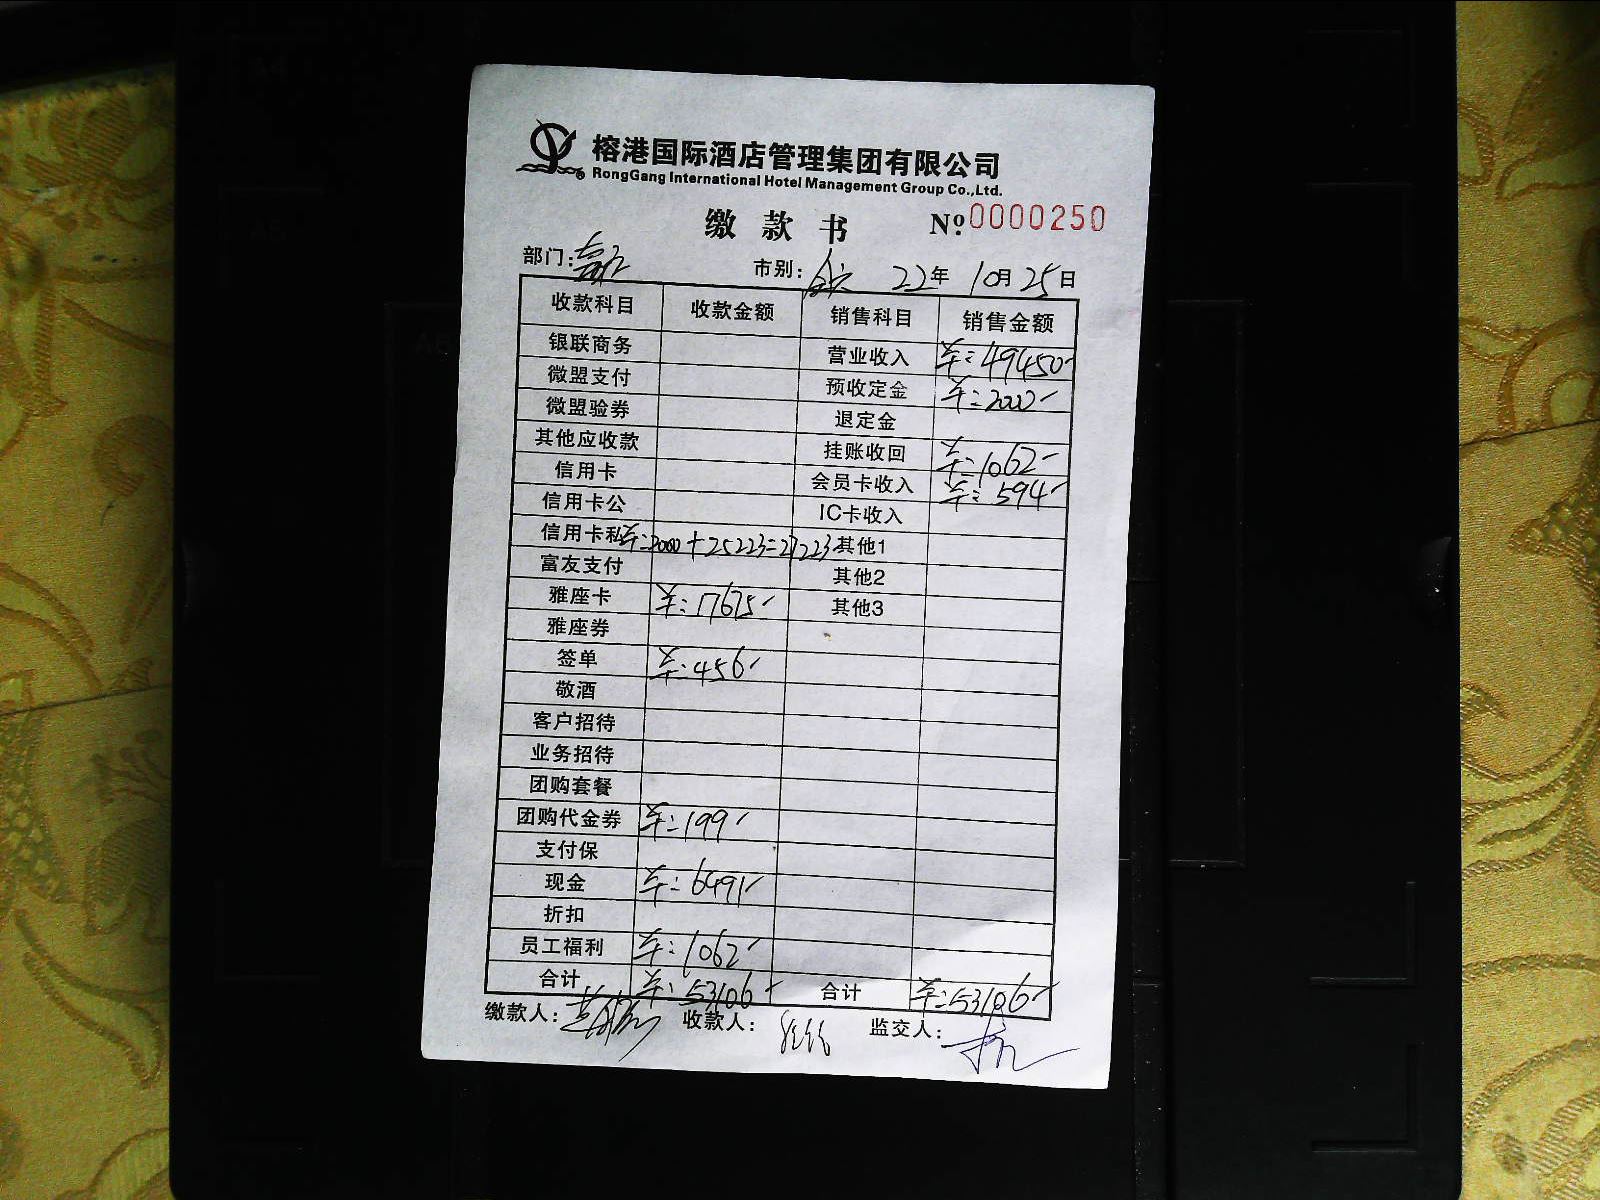 榕港国际酒店管理集团有限公司
RongGang International Hotel Management Group Co.,Ltd.
缴款书 Nº 0000250
部门: 市别: 22年 10月 25日
收款科目 收款金额 销售科目 销售金额
银联商务 营业收入 羊:49450-
微盟支付 预收定金 羊:2000-
微盟验券 退定金
其他应收款 挂账收回 羊:1062-
信用卡 会员卡收入 羊:594-
信用卡公 IC卡收入
信用卡私 羊:2000+25223=27223 其他1
富友支付 其他2
雅座卡 羊:17675- 其他3
雅座券
签单 羊:456-
敬酒
客户招待
业务招待
团购套餐
团购代金券 羊:199-
支付保
现金 羊:6491-
折扣
员工福利 羊:1062-
合计 羊:53106- 合计 羊:53106-
缴款人: 收款人: 监交人: